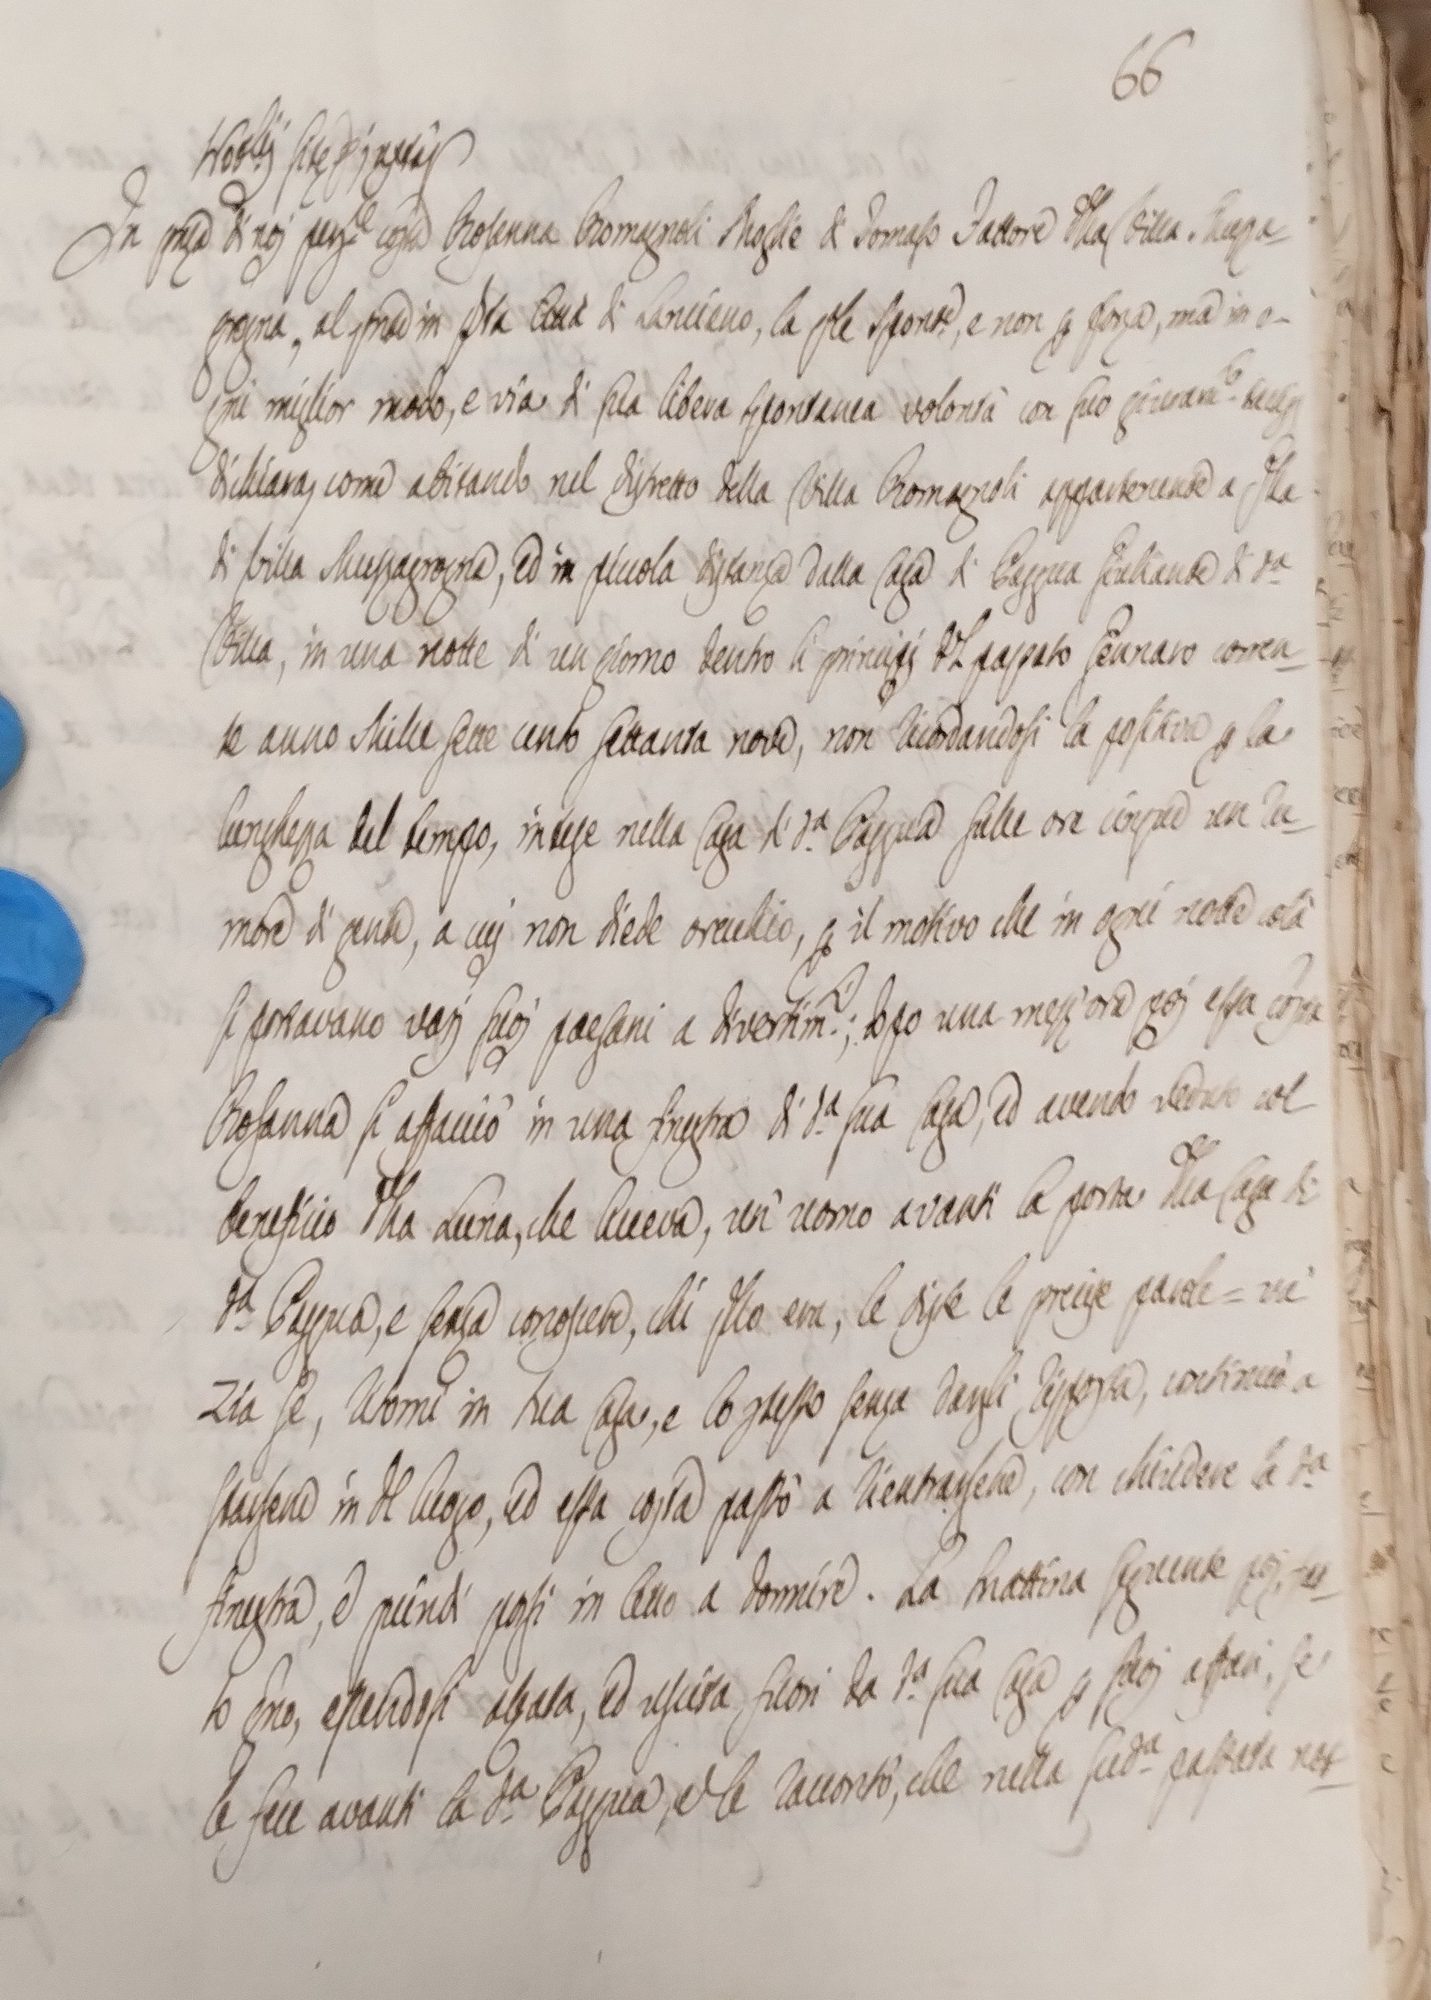 66
In pñza di noj pers.le cost.a Rosanna Romagnoli Moglie di Tomaso Fattore della Villa Mozza-
grogna, al pñte in qsta Città di Lanciano, la qle spont.e, e non p forza, ma in o-
gni miglior modo, e via di sua libera spontanea volontà con suo giuram.to
dichiara, come abitando nel distretto della Villa Romagnoli appartenente a qlla
di Villa Mozzagrogna, ed in piccola distanza dalla Casa di Pasqua Giuliante di d.a
Villa, in una notte di un giorno dentro li principj del passato Gennaro corren-
te anno Mille sette cento settanta nove, non ricordandosi la positiva p la
lunghezza del tempo, intese nella Casa di d.a Pasqua sulle ore cinque un ru-
more di gente, a cuj non diede orecchio, p il motivo che in ogni notte colà
si portavano varj suoj paesani a divertim.ti; dopo una mezz'ora poj essa cost.a
Rosanna si affacciò in una finestra di d.a sua Casa, ed avendo veduto col
beneficio della Luna, che luceva, un uomo avanti la porta della Casa di
d.a Pasqua, e senza conoscere, chi qllo era, le disse le precise parole =
Zia se, in tua Casa, e lo stesso senza dargli risposta, continuò a
starsene in dl luogo, ed essa cost.a passò a rientrarsene, con chiudere la d.a
finestra, e quindi posesi in letto a dormire. La mattina seguente poj,
to essendosi alzata, ed uscita fuori da d.a sua Casa p suoj affari, se
le fece avanti la d.a Pasqua, e le raccontò, che nella sud.a passata not-